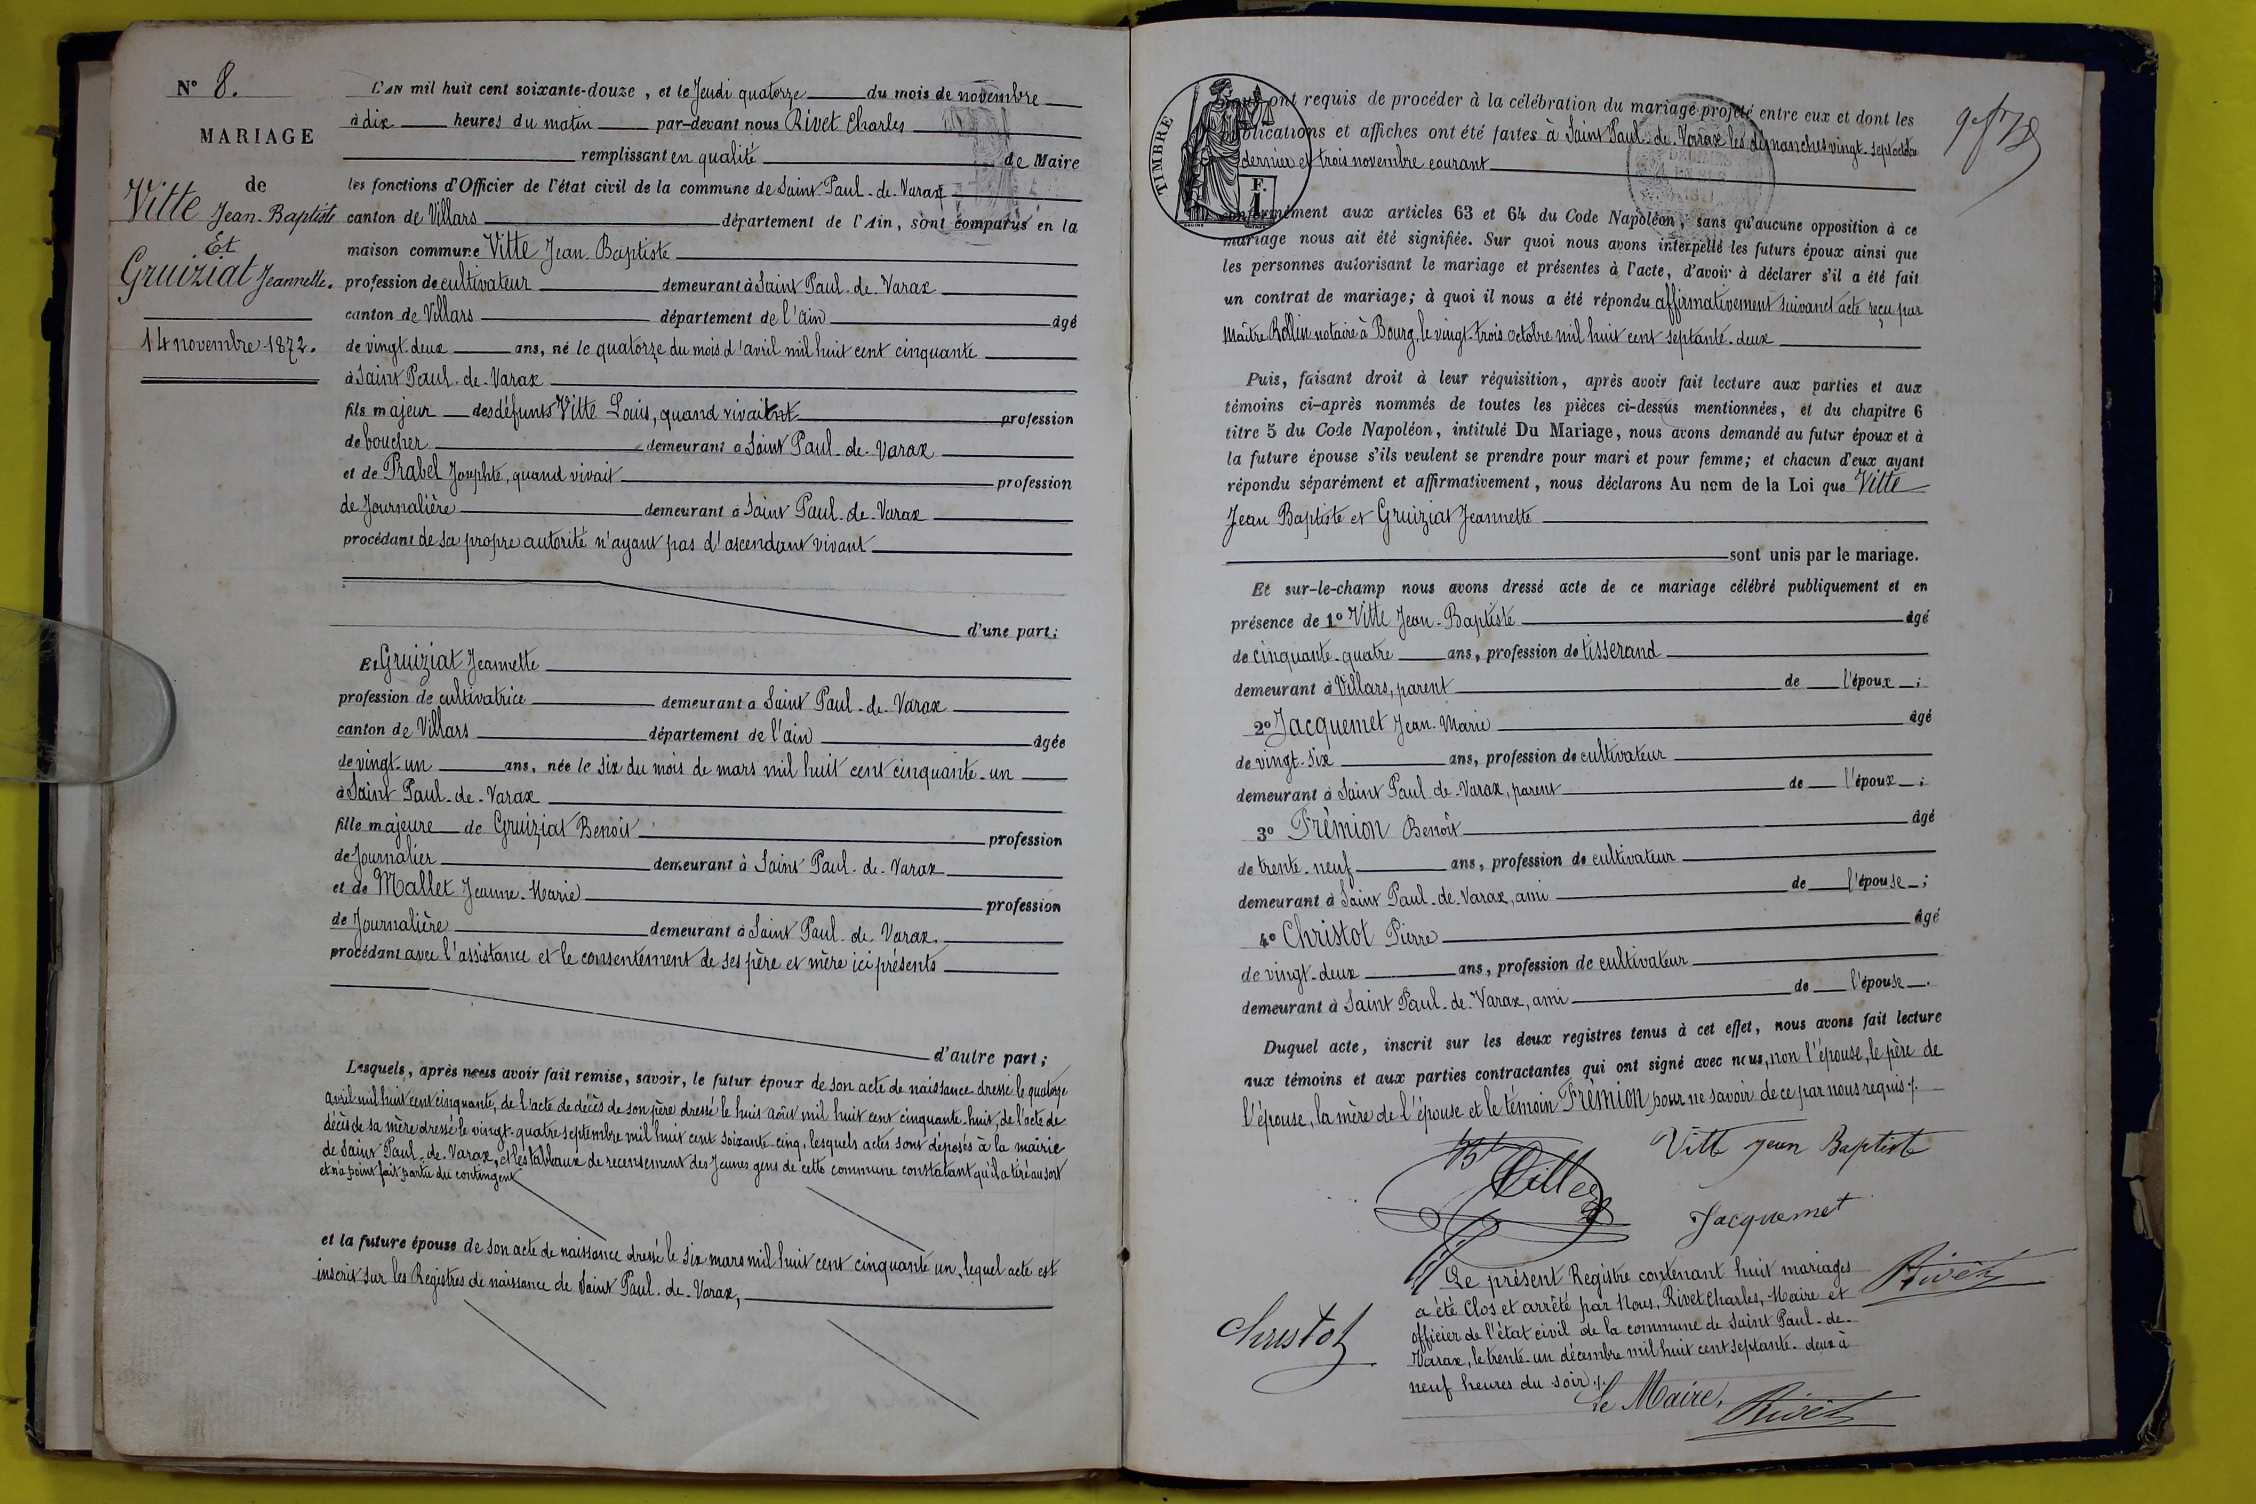 N° 8.
MARIAGE
de
Vitte Jean-Baptiste
Et
Gruiziat Jeannette.
14 novembre 1872.
L'AN mil huit cent soixante-douze, et le Jeudi quatorze du mois de novembre
à dix heures du matin par-devant nous Rivet Charles
remplissant en qualité de Maire
les fonctions d'Officier de l'état civil de la commune de Saint-Paul-de-Varax
canton de Villars département de l'Ain, sont comparus en la
maison commune Vitte Jean-Baptiste
profession de cultivateur demeurant à Saint Paul-de-Varax
canton de Villars département de l'ain âgé
de vingt-deux ans, né le quatorze du mois d'avril mil huit cent cinquante
à Saint Paul-de-Varax
fils majeur des défunts Vitte Louis, quand vivait profession
de boucher demeurant à Saint Paul-de-Varax
et de Prabel Josephte, quand vivait profession
de Journalière demeurant à Saint Paul-de-Varax
procédant de sa propre autorité n'ayant pas d'ascendant vivant
d'une part;
Et Gruiziat Jeannette
profession de cultivatrice demeurant à Saint Paul-de-Varax
canton de Villars département de l'ain âgée
de vingt-un ans, née le six du mois de mars mil huit cent cinquante-un
à Saint Paul-de-Varax
fille majeure de Gruiziat Benoit profession
de Journalier demeurant à Saint Paul-de-Varax
et de Mallet Jeanne-Marie profession
de Journalière demeurant à Saint Paul-de-Varax.
procédant avec l'assistance et le consentement de ses père et mère ici présents
d'autre part;
Lesquels, après nous avoir fait remise, savoir, le futur époux de son acte de naissance dressé le quatorze
avril mil huit cent cinquante, de l'acte de décès de son père dressé le huit août mil huit cent cinquante-huit, de l'acte de
décès de sa mère dressé le vingt-quatre septembre mil huit cent soixante-cinq, lesquels actes sont déposés à la mairie
de Saint Paul-de-Varax, et les tableaux de recensement des Jeunes gens de cette commune constatant qu'il a tiré au sort
et n'a point fait partie du contingent
et la future épouse de son acte de naissance dressé le six mars mil huit cent cinquante un, lequel acte est
inscrit sur les Registres de naissance de Saint Paul-de-Varax,
TIMBRE
F.
1
nous ont requis de procéder à la célébration du mariage projeté entre eux et dont les
publications et affiches ont été faites à Saint Paul-de-Varax les dimanches vingt-sept octobre
dernier et trois novembre courant
conformément aux articles 63 et 64 du Code Napoléon, sans qu'aucune opposition à ce
mariage nous ait été signifiée. Sur quoi nous avons interpellé les futurs époux ainsi que
les personnes autorisant le mariage et présentes à l'acte, d'avoir à déclarer s'il a été fait
un contrat de mariage; à quoi il nous a été répondu affirmativement suivant acte reçu par
Maître Rollin notaire à Bourg, le vingt-trois octobre mil huit cent septante-deux
Puis, faisant droit à leur réquisition, après avoir fait lecture aux parties et aux
témoins ci-après nommés de toutes les pièces ci-dessus mentionnées, et du chapitre 6
titre 5 du Code Napoléon, intitulé Du Mariage, nous avons demandé au futur époux et à
la future épouse s'ils veulent se prendre pour mari et pour femme; et chacun d'eux ayant
répondu séparément et affirmativement, nous déclarons Au nom de la Loi que Vitte
Jean Baptiste et Gruiziat Jeannette
sont unis par le mariage.
Et sur-le-champ nous avons dressé acte de ce mariage célébré publiquement et en
présence de 1° Vitte Jean-Baptiste âgé
de cinquante-quatre ans, profession de tisserand
demeurant à Villars, parent de l'époux;
2° Jacquemet Jean-Marie âgé
de vingt-six ans, profession de cultivateur
demeurant à Saint Paul-de-Varax, parent de l'époux;
3° Frémion Benoît âgé
de trente-neuf ans, profession de cultivateur
demeurant à Saint Paul-de-Varax, ami de l'épouse;
4° Christot Pierre âgé
de vingt-deux ans, profession de cultivateur
demeurant à Saint Paul-de-Varax, ami de l'épouse.
Duquel acte, inscrit sur les deux registres tenus à cet effet, nous avons fait lecture
aux témoins et aux parties contractantes qui ont signé avec nous, non l'épouse, le père de
l'épouse, la mère de l'épouse et le témoin Frémion pour ne savoir de ce par nous requis./.
Vitte Jean Baptiste
Jacquemet
Christot
Rivet
Le présent Registre contenant huit mariages
a été Clos et arrêté par Nous, Rivet Charles, Maire et
officier de l'état civil de la commune de Saint Paul-de-
Varax, le trente-un décembre mil huit cent septante-deux à
neuf heures du soir./.
Le Maire,
Rivet